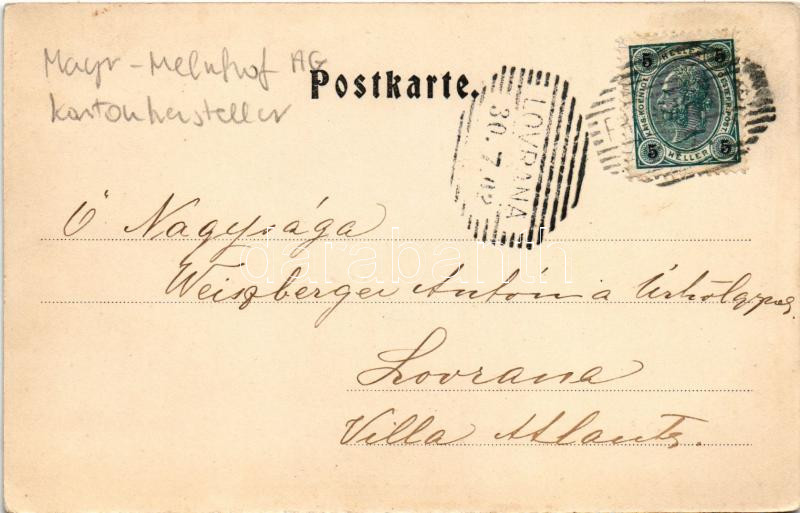 Mayr-Melnhof AG
Kartonhersteller
Postkarte.
LOVRANA
30. 7. 02
5 HELLER 5
5 HELLER 5
Ő Nagysága
Weiszberger Antónia Úrhölgynek
Lovrana
Villa Atlanta.
darabanth